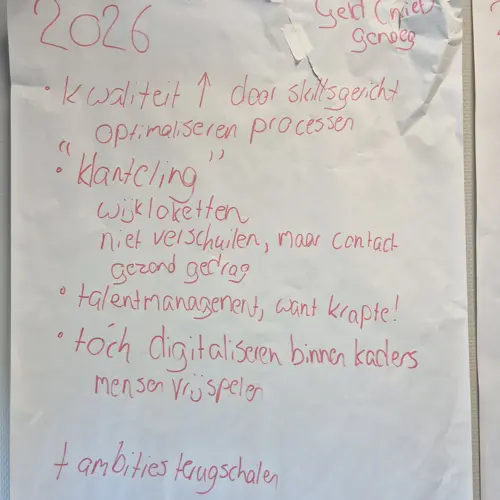 2026
Geld (niet
genoeg
• kwaliteit ↑ door skillsgericht
optimaliseren processen
• "klanteling"
wijkloketten
niet verschuilen, maar contact
gezond gedrag
• talentmanagement, want krapte!
• tóch digitaliseren binnen kaders
mensen vrijspelen
+ ambities terugschalen